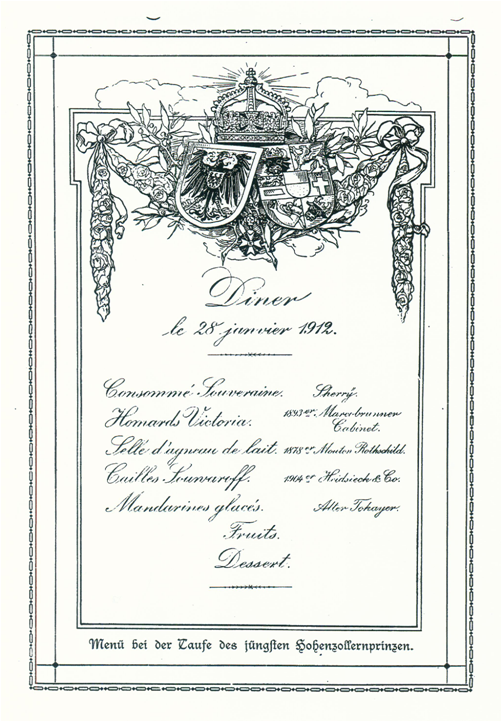 Diner
le 28 janvier 1912.
Consommé Souveraine. Sherry.
Homards Victoria. 1893er Marcobrunner
Cabinet.
Selle d'agneau de lait. 1878er Mouton Rothschild.
Cailles Souwaroff. 1904er Heidsieck & Co.
Mandarines glacés. Alter Tokayer.
Fruits.
Dessert.
Menü bei der Taufe des jüngsten Hohenzollernprinzen.